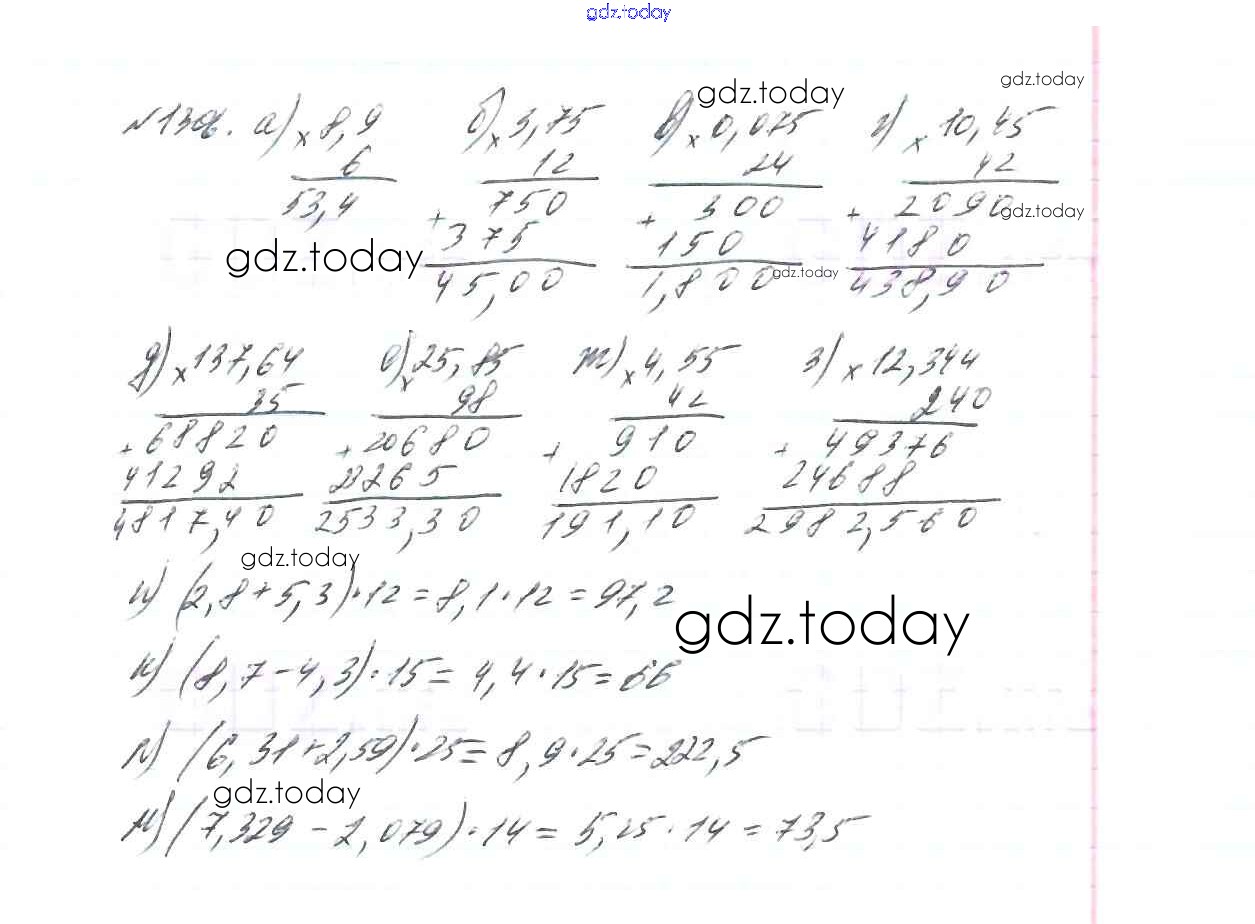 gdz.today
gdz.today gdz.today
а) × 8,9 б) × 3,75 в) × 0,075 г) × 10,45
6 12 24 42
53,4 750 300 2090 gdz.today
+ + +
gdz.today 375 150 4180
45,00 1,800 gdz.today 438,90
д) × 137,64 е) × 25,85 ж) × 4,55 з) × 12,344
35 98 42 240
+ 68820 + 20680 + 910 + 49376
41292 23265 1820 24688
4817,40 2533,30 191,10 2962,560
gdz.today
и) (2,8+5,3)·12=8,1·12=97,2
gdz.today
к) (8,7-4,3)·15=4,4·15=66
л) (6,31+2,59)·25=8,9·25=222,5
gdz.today
м) (7,329-2,079)·14=5,25·14=73,5